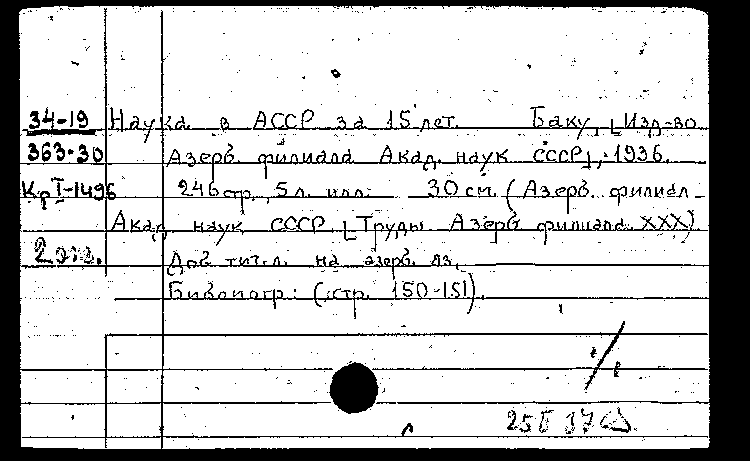 34-19 Наука в АССР за 15 лет. Баку, [Изд-во
363-30 Азерб. филиала Акад. наук СССР], 1936.
КрI-1496 246 стр., 5 л. илл. 30 см. (Азерб. филиал
Акад. наук СССР. [Труды Азерб. филиала. XXX)
2 экз. Доб. тит. л. на азерб. яз.
Библиогр: (стр. 150-151).
25 Б 37